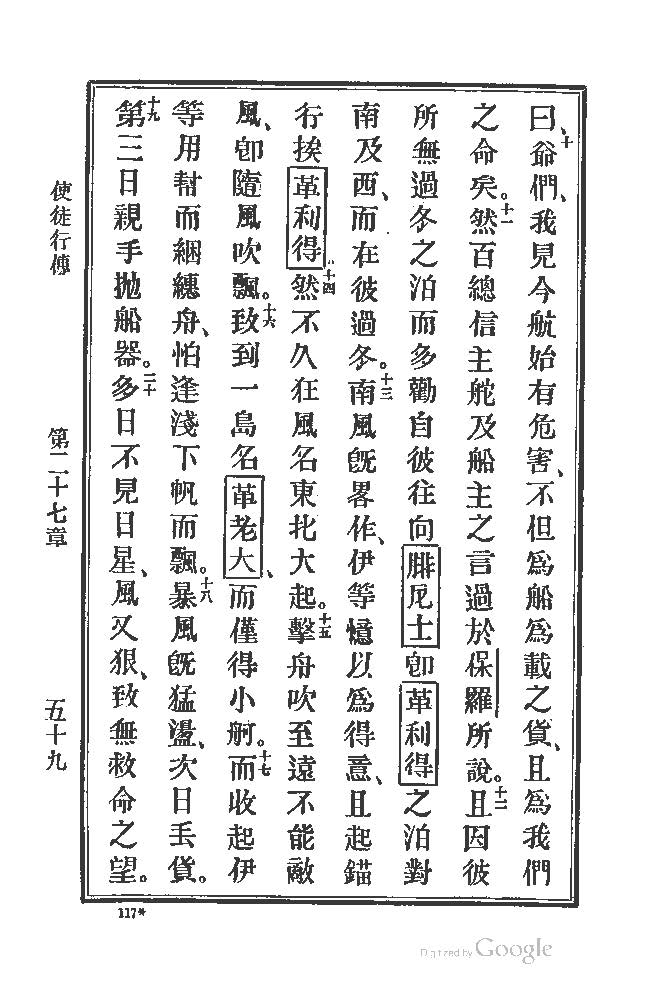 曰、十爺們、我見今航始有危害、不但爲船爲載之貨、且爲我們
之命矣。十一然百總信主舵及船主之言過於保羅所說。十二且因彼
所無過冬之泊而多勸自彼往向腓尼士卽革利得之泊對
南及西、而在彼過冬。十三南風旣畧作、伊等憶以爲得意、且起錨
行挨革利得十四然不久狂風名東北大起。十五擊舟吹至遠不能敵
風、卽隨風吹飄。十六致到一島名革老大、而僅得小舸。十七而收起伊
等用幇而綑纏舟、怕逢淺下帆而飄。十八暴風旣猛盪、次日丟貨。
十九第三日親手抛船器。二十多日不見日星、風又狠、致無救命之望。
使徒行傳 第二十七章 五十九
117*
Digitized by Google